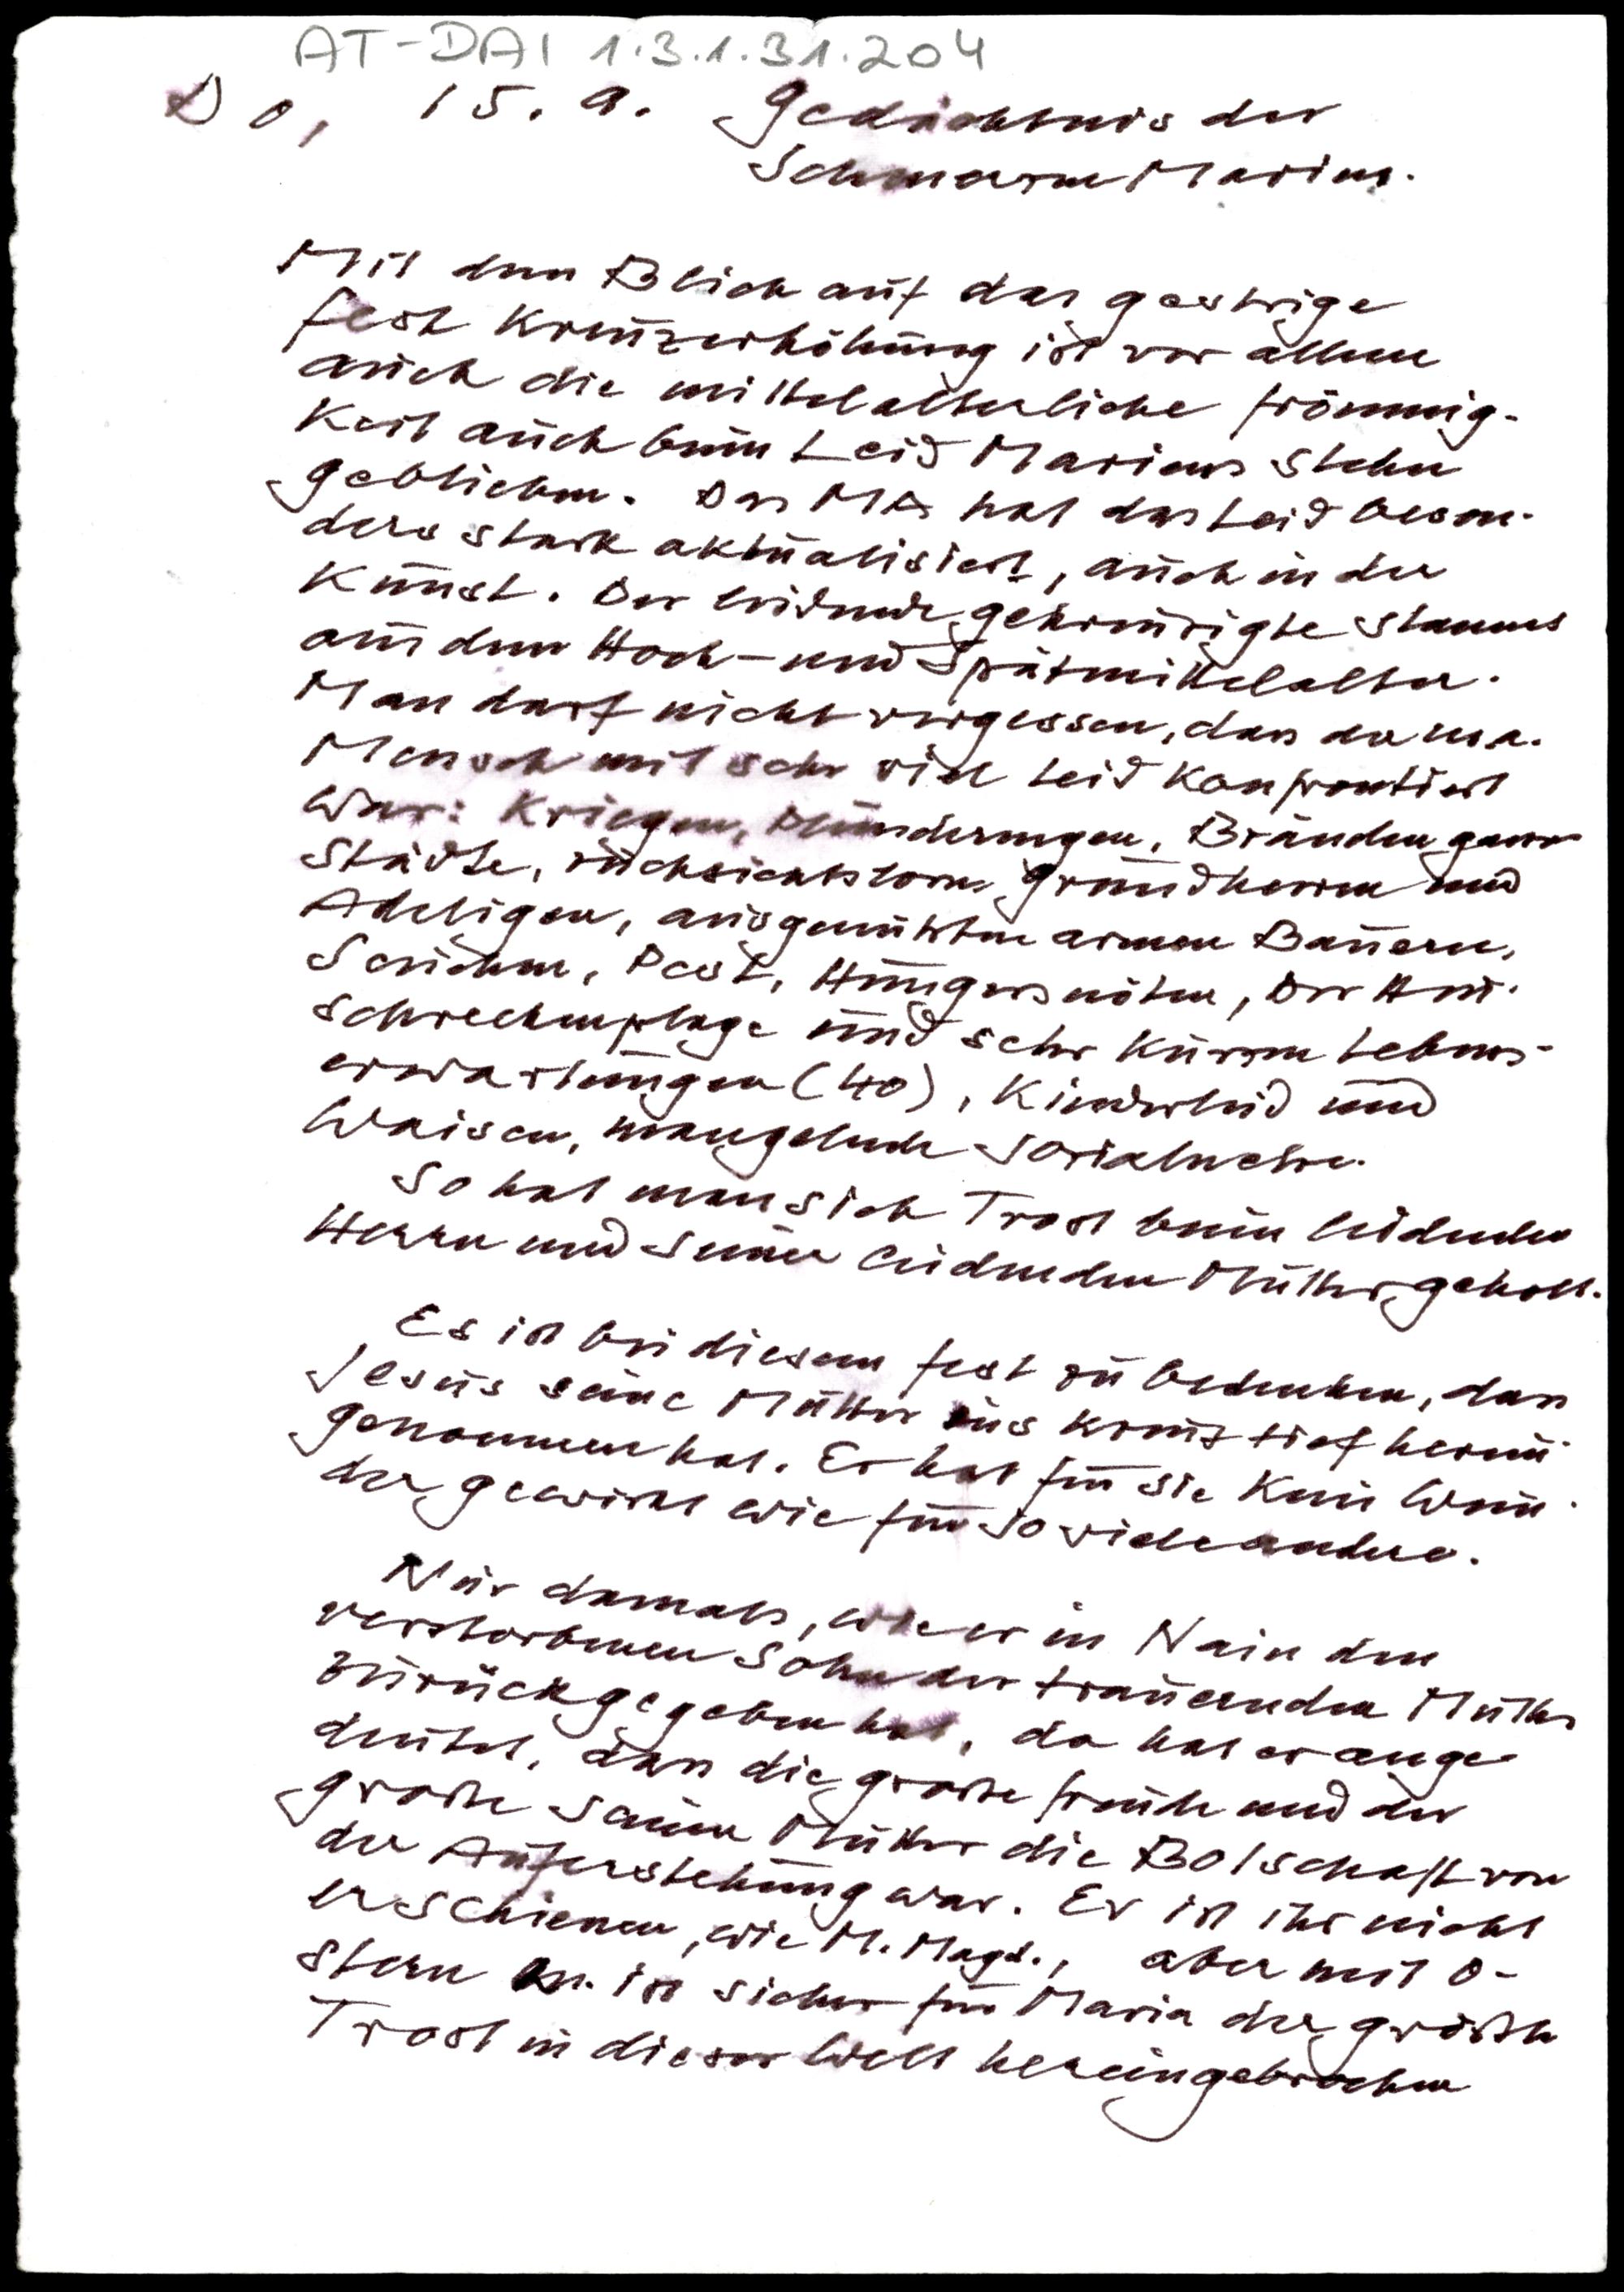 AT-DAI 1.3.1.31.204
Do, 15. 9. Gedächtnis der
Schmerzen Mariens.
Mit dem Blick auf das gestrige
Fest Kreuzerhöhung ist vor allem
auch die mittelalterliche Frömmig-
keit auch beim Leid Mariens stehen
geblieben. Das MA hat das Leid beson-
ders stark aktualisiert, auch in der
Kunst. Der leidende Gekreuzigte stammt
aus dem Hoch- und Spätmittelalter.
Man darf nicht vergessen, dass der m.a.
Mensch mit sehr viel Leid konfrontiert
war: Kriegen, Plünderungen, Bränden ganzer
Städte, rücksichtslosen Grundherren und
Adeligen, ausgenützten armen Bauern,
Seuchen, Pest, Hungersnöten, der Heu-
schreckenplage und sehr kurzen Lebens-
erwartungen (40), Kinderleid und
Waisen, mangelnde Sozialnetze.
So hat man sich Trost beim leidenden
Herrn und seiner leidenden Mutter geholt.
Es ist bei diesem Fest zu bedenken, dass
Jesus seine Mutter ins Kreuz tief herein-
genommen hat. Er hat für sie kein Wun-
der gewirkt wie für so viele andere.
Nur damals, wie er in Nain den
verstorbenen Sohn der trauernden Mutter
zurückgegeben hat, da hat er ange-
deutet, dass die große Freude und der
große seiner Mutter die Botschaft von
der Auferstehung war. Er ist ihr nicht
erschienen, wie M. Magd., aber mit O-
stern ist sicher für Maria der größte
Trost in dieser Welt hereingebrochen